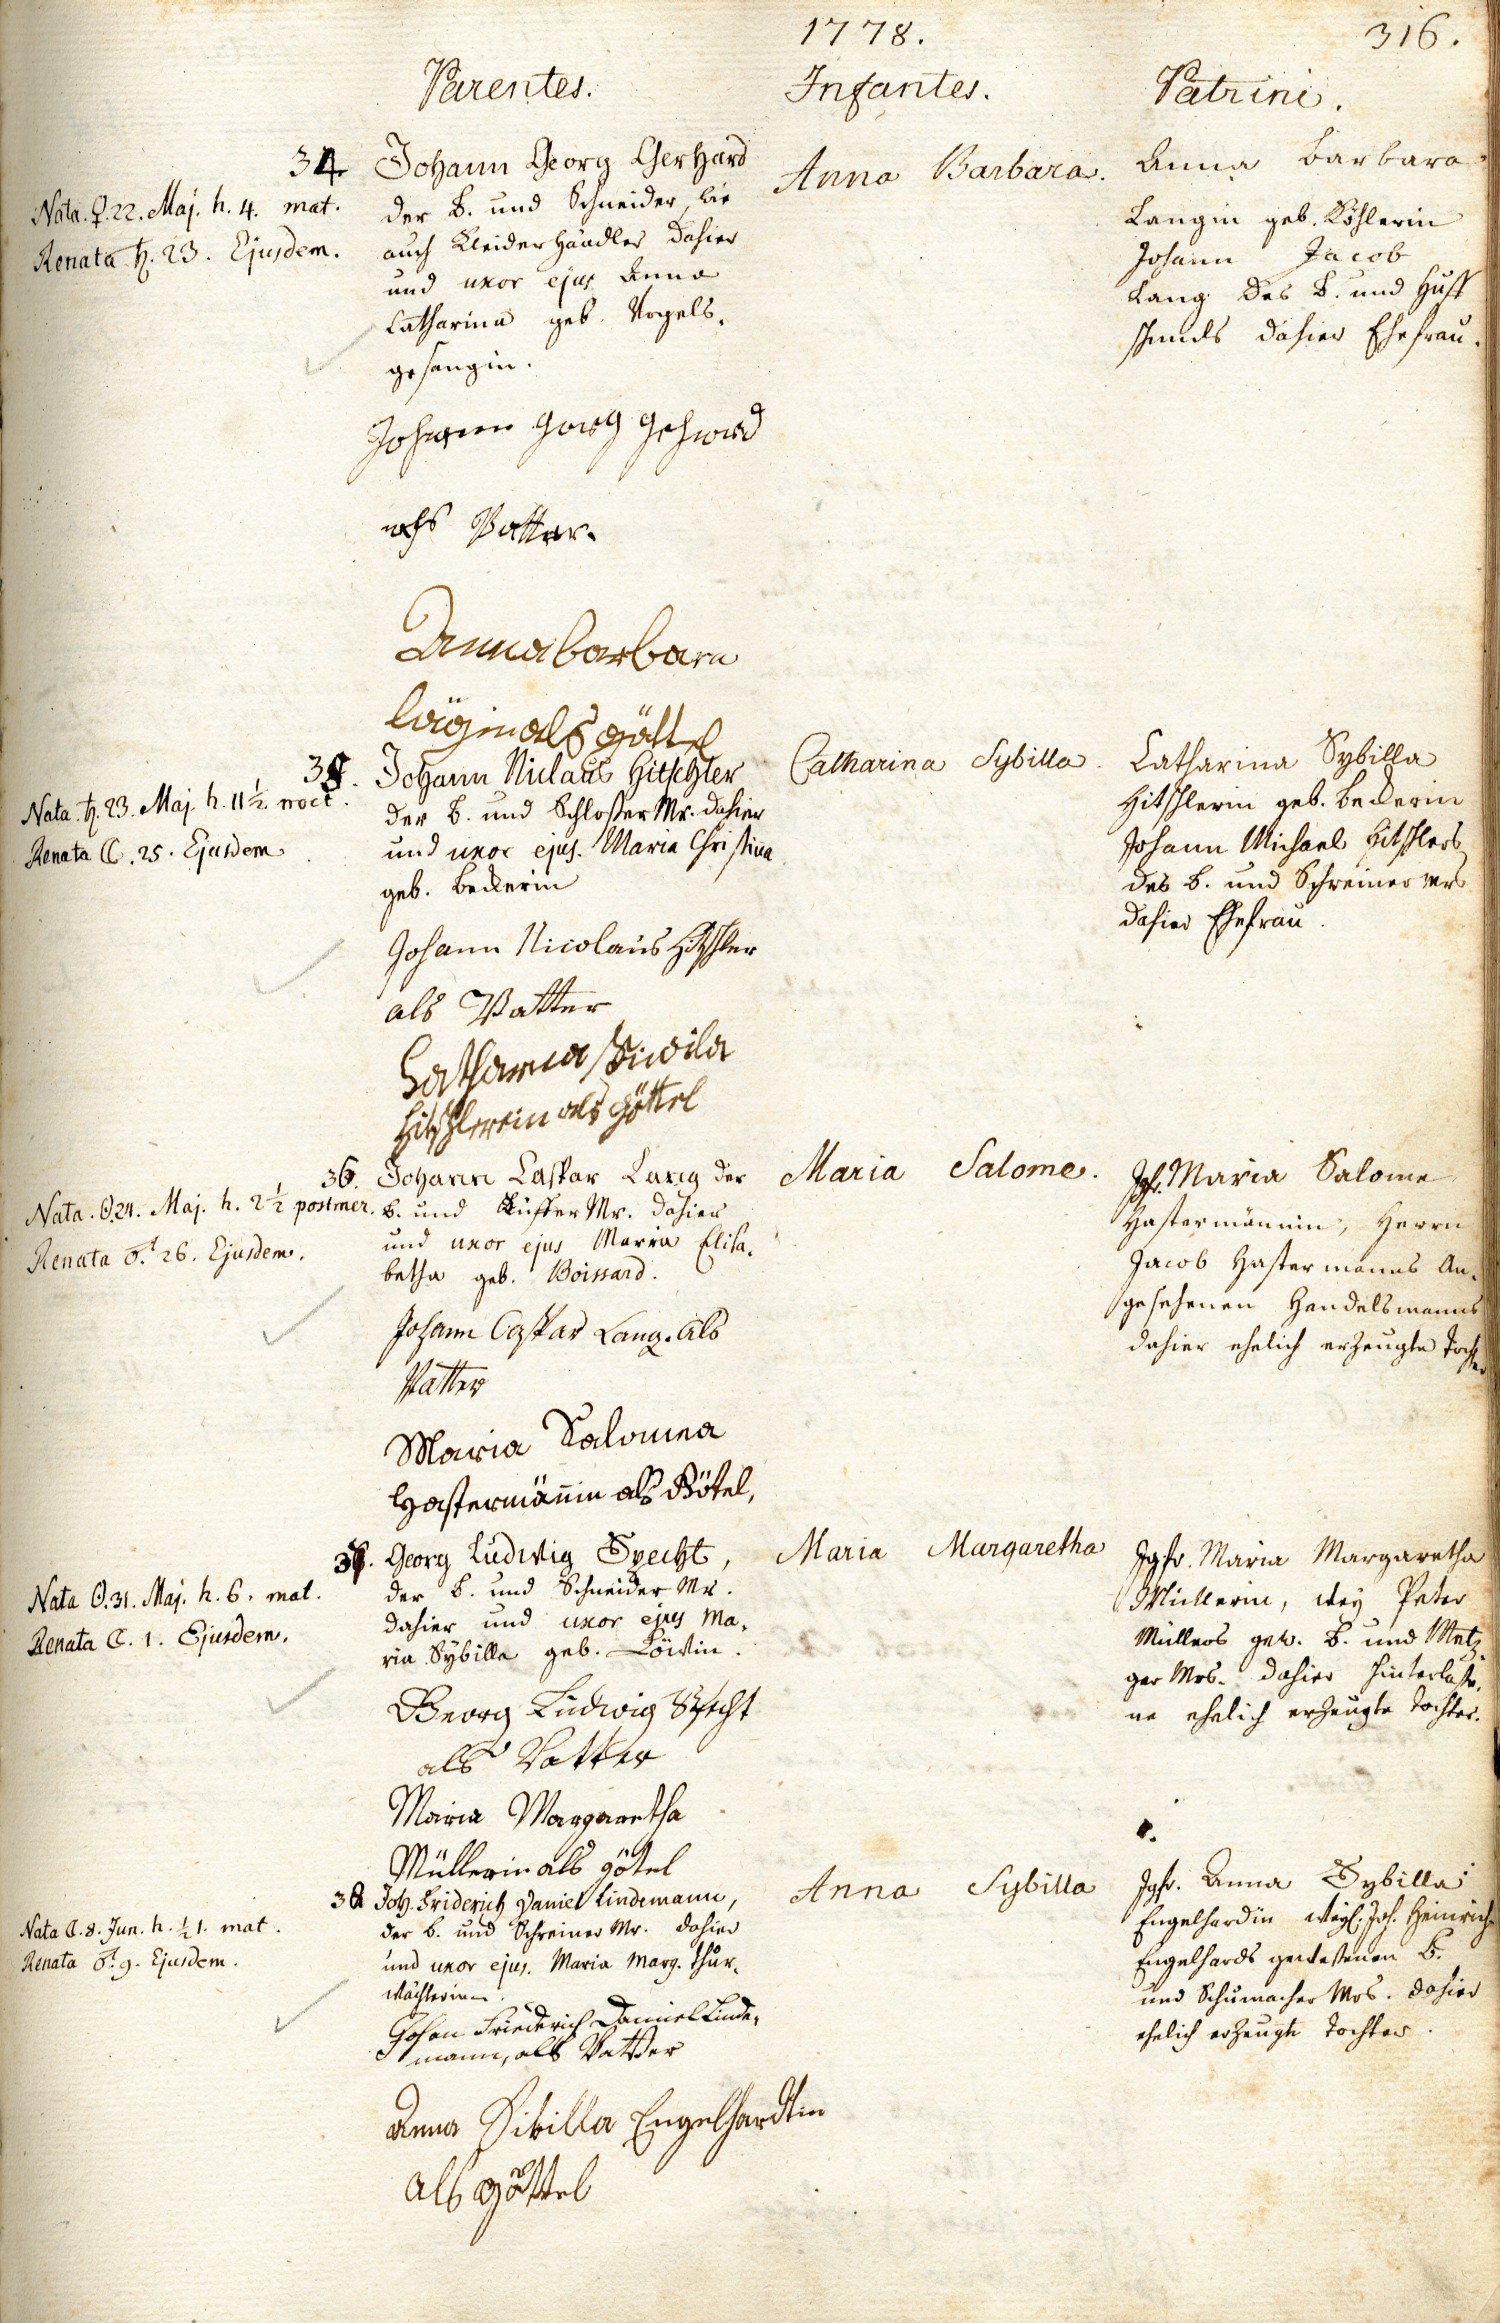 1778.
316.
Parentes.
Infantes.
Patrini.
34
Nata. ♀. 22. Maj. h. 4. mat.
Renata ♄. 23. Ejusdem.
Johann Georg Gerhard
der B. und Schneider, wie
auch Kleiderhändler dahier
und uxor ejus Anna
Catharina geb. Vogels-
gesangin.
Anna Barbara.
Anna Barbara
Langin geb. Köhlerin
Johann Jacob
Lang des B. und Huff
schmids dahier Ehefrau.
Johann Georg Gerhard
als Vatter.
Anna barbara
als göttel
35.
Nata. ♄. 23. Maj. h. 11½ noct.
Renata ☾. 25. Ejusdem
Johann Niclaus Hitschler
der B. und Schlosser Mr. dahier
und uxor ejus. Maria Christina
geb. Beckerin
Catharina Sybilla.
Catharina Sybilla
Hitschlerin geb. Beckerin
Johann Michael Hitschlers
des B. und Schreiner Mrs
dahier Ehefrau.
Johann Nicolaus Hitschler
als Vatter
Catharina Siwila
Hitschlerin als göttel
36.
Nata. ☉. 24. Maj. h. 2½ postmer.
Renata ♂. 26. Ejusdem.
Johann Caspar Lang der
B. und Küffer Mr. dahier
und uxor ejus Maria Elisa-
betha geb. Boissard.
Maria Salome.
Jgfr. Maria Salome
Hastermännin, Herrn
Jacob Hastermanns An-
gesehenen Handelsmanns
dahier ehelich erzeugte Tochter
Johann Caspar Lang. Als
Vatter
Maria Salomea
Hastermännin als Götel,
Nata ☉. 31. Maj. h. 6. mat.
Renata ☾. 1. Ejusdem.
Georg Ludwig Specht,
der B. und Schneider Mr.
dahier und uxor ejus Ma-
ria Sybilla geb. Löwin.
Maria Margaretha
Jgfr. Maria Margaretha
Müllerin, wey Peter
Müllers gew. B. und Metz-
ger Mrs. dahier hinterlaße-
ne ehelich erzeugte Tochter.
Georg Ludwig Specht
als Vatter
Maria Margaretha
Müllerin als götel
38
Nata ☾. 8. Jun. h. ½ 1. mat.
Renata ♂. 9. Ejusdem.
Joh. Friderich Daniel Lindemann,
der B. und Schreiner Mr. dahier
und uxor ejus. Maria Marg. Thür-
wächterin.
Anna Sybilla
Jgfr. Anna Sybilla
Engelhardin weyl. Joh. Heinrich
Engelhards gewesenen B.
und Schumacher Mrs. dahier
ehelich erzeugte Tochter.
Johan Friederich Daniel Linde-
mann, als Vatter
Anna Sibilla Engelhardtin
als göttel